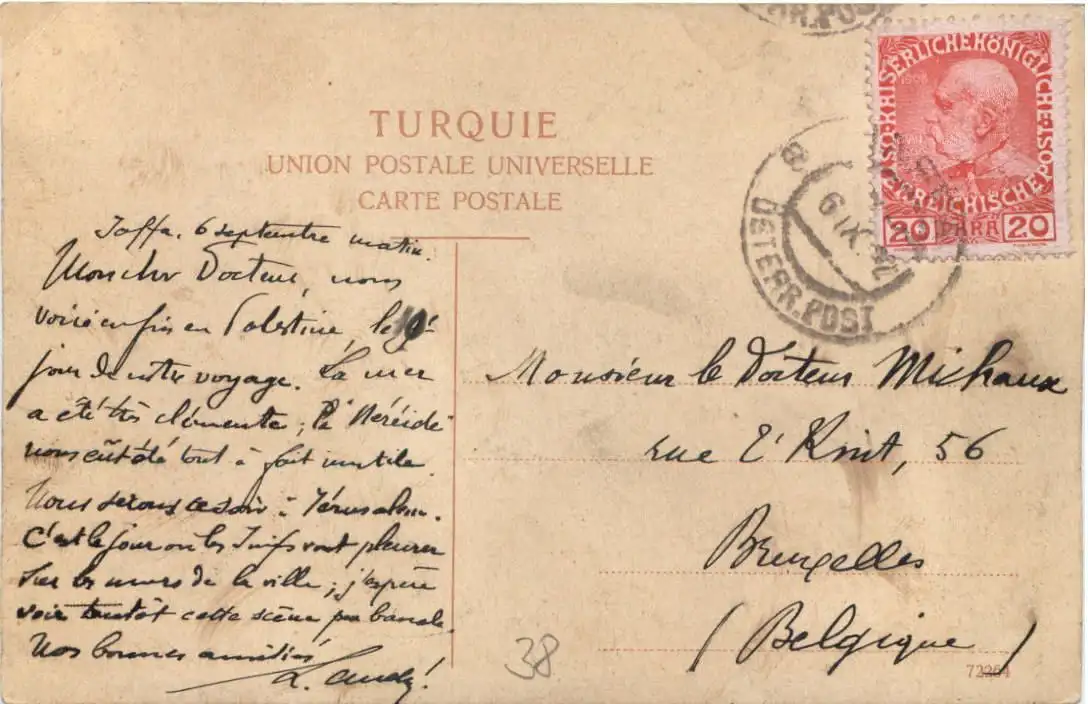 TURQUIE
UNION POSTALE UNIVERSELLE
CARTE POSTALE
KAISERLICHE KÖNIGLICHE ÖSTERREICHISCHE POST
1908
20 PARA 20
ÖSTERR. POST
6 IX
Jaffa. 6 septembre matin.
Mon cher Docteur, nous
voici enfin en Palestine, le
jour de notre voyage. La mer
a été très clémente; la Néréide
nous eût été tout à fait inutile.
Nous serons ce soir à Jérusalem.
C'est le jour où les Juifs vont pleurer
sur les murs de la ville; j'espère
voir tantôt cette scène peu banale.
Nos bonnes amitiés
Monsieur le Docteur Michaux
rue 56
Bruxelles
(Belgique)
38